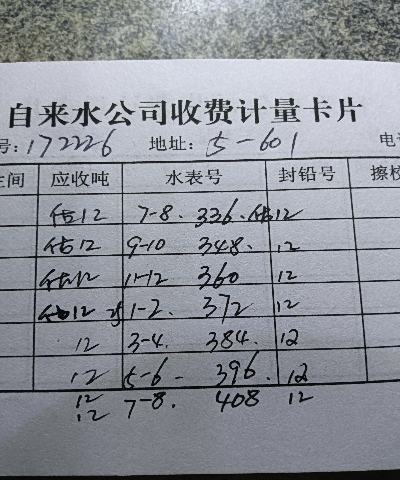 自来水公司收费计量卡片
号:172226 地址:5-601 电
间 应收吨 水表号 封铅号 擦
估12 7-8. 336. 估12
估12 9-10 348. 12
估12 11-12 360 12
估12 1-2. 372 12
12 3-4. 384. 12
12 5-6- 396. 12
12 7-8. 408 12
12